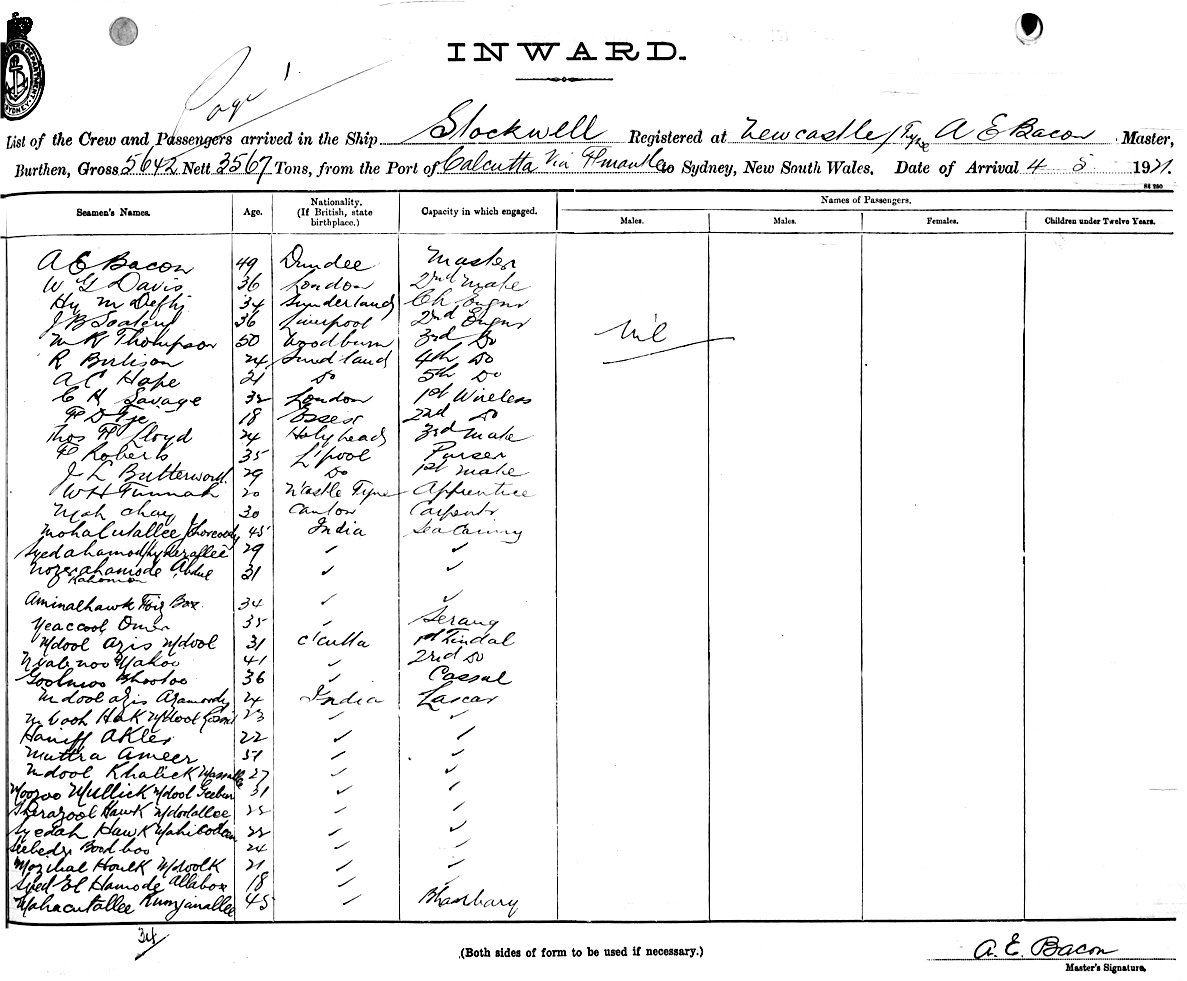 INWARD.
Page 1.
List of the Crew and Passengers arrived in the Ship Stockwell Registered at Newcastle/Tyne A E Bacon Master,
Burthen, Gross 5642 Nett 3567 Tons, from the Port of Calcutta Via F'mantle to Sydney, New South Wales. Date of Arrival 4 5 1921.
Seamen's Names. Age. Nationality. (If British, state birthplace.) Capacity in which engaged. Names of Passengers.
Males. Males. Females. Children under Twelve Years.
A E Bacon 49 Dundee Master
W G Davis 36 London 2nd Mate
Hy M 34 Sunderland Ch Engnr
J B 36 Liverpool 2nd Engnr
Nil
W R Thompson 50 Woodburn 3rd Do
R Burlison 24 Sund'land 4th Do
A C Hope 21 Do 5th Do
C H Savage 32 London 1st Wireless
F D Fje 18 Essex 2nd Do
Thos H Lloyd 24 Holyhead 3rd Mate
F Roberts 35 L'pool Purser
J L Butterworth 29 Do 1st Mate
W H Funnah 20 N'castle Tyne Apprentice
Wah Chay 30 Canton Carpentr
45 India
29 " "
Abdul 31 " "
Rahoman
Aminalhawk Foiz Box 34 " "
Yeaccool Omer 35 " Serang
Mdool Azis Mdool 31 C'cutta 1st Tindal
41 " 2nd Do
Goolmoo Bhootoo 36 " Cassab
Mdool Azis Azamoody 24 India Lascar
Hak Mdool 23 " "
Haniff Akles 22 " "
Muttra Ameer 51 " "
Mdool Khalick 27 " "
Moozoo Mullick Mdool 31 " "
Sherazool Hawk Mdoolallee 22 " "
Syedah Hawk 22 " "
24 " "
Mozihal Houlk Mdoolk 21 " "
Syed El Hamode Allabox 18 " "
Mahacutallee Rumjanallee 45 " Bhandary
34
(Both sides of form to be used if necessary.)
A. E. Bacon
Master's Signature.